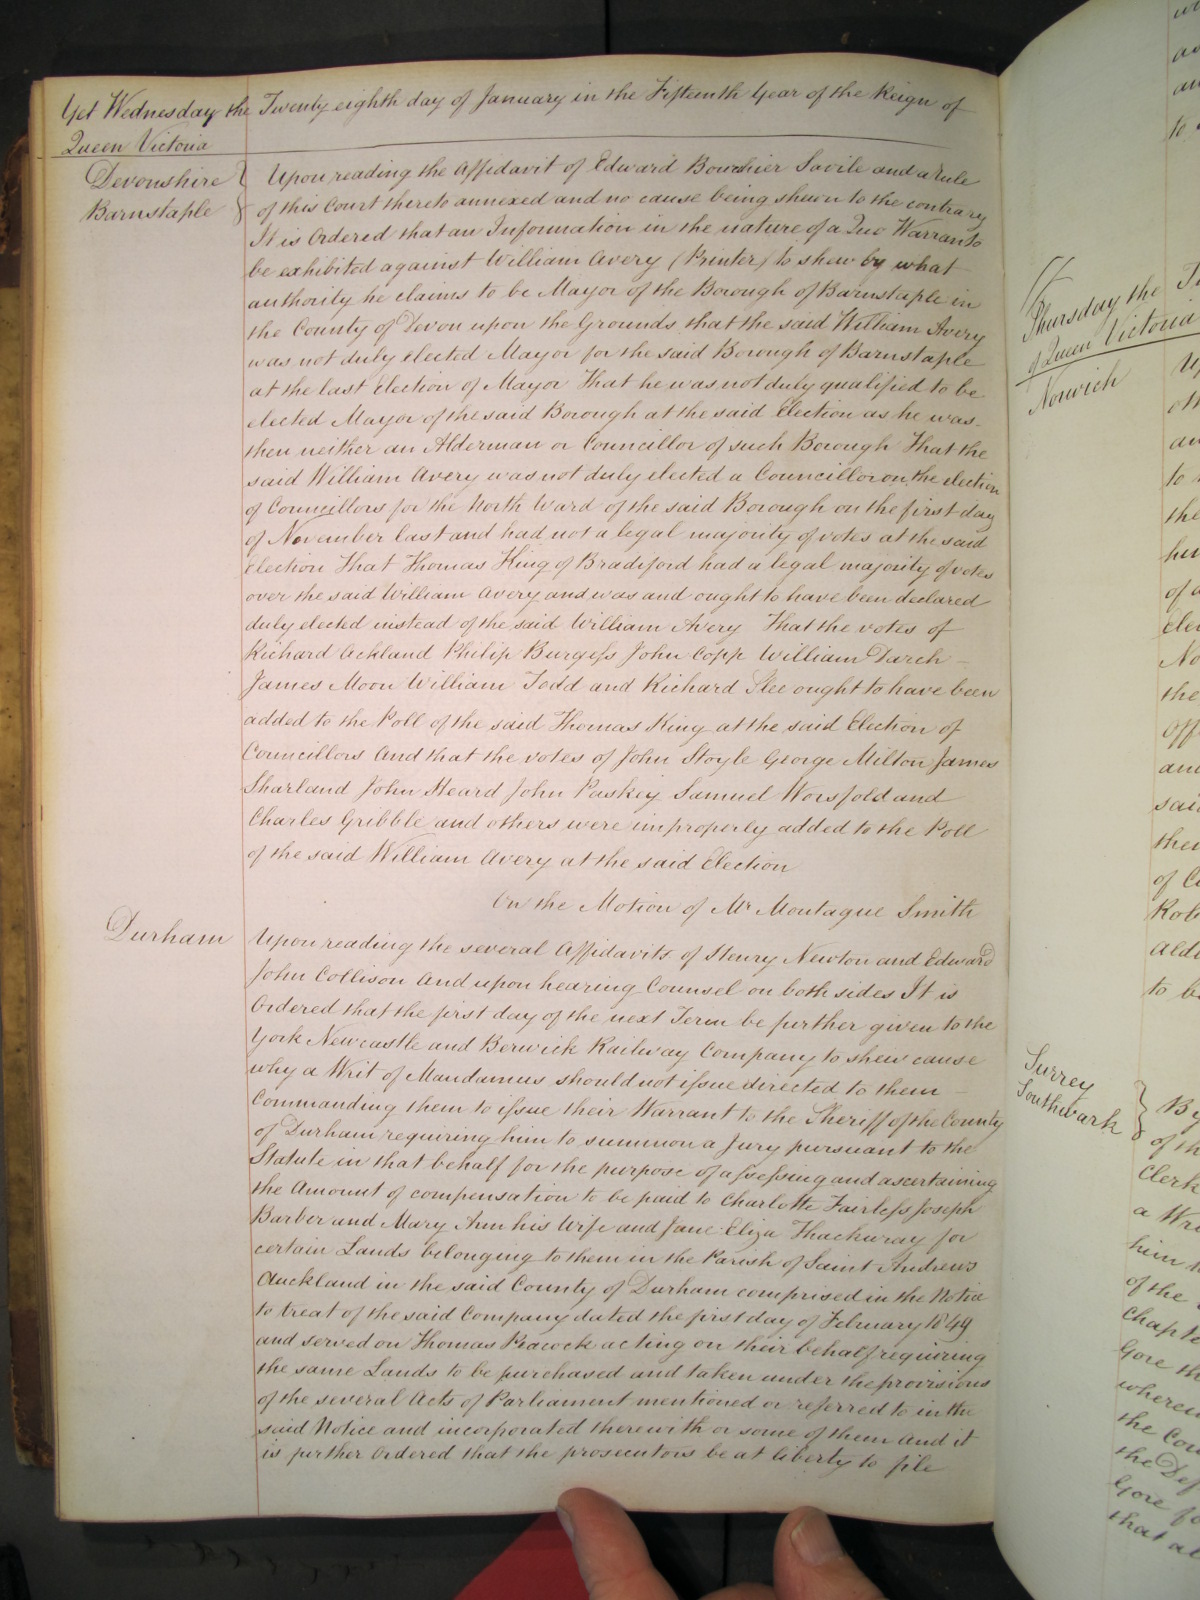 Yet Wednesday the Twenty eighth day of January in the Fifteenth Year of the Reign of
Queen Victoria
Devonshire
Barnstaple
Upon reading the Affidavit of Edward Bourchier Savile and a Rule
of this Court thereto annexed and no cause being shewn to the contrary
It is Ordered that an Information in the nature of a Quo Warranto
be exhibited against William Avery (Printer) to shew by what
authority he claims to be Mayor of the Borough of Barnstaple in
the County of Devon upon the Grounds that the said William Avery
was not duly elected Mayor for the said Borough of Barnstaple
at the last Election of Mayor That he was not duly qualified to be
elected Mayor of the said Borough at the said Election as he was
then neither an Alderman or Councillor of such Borough That the
said William Avery was not duly elected a Councillor on the election
of Councillors for the North Ward of the said Borough on the first day
of November last and had not a legal majority of votes at the said
Election That Thomas King of Bradiford had a legal majority of votes
over the said William Avery and was and ought to have been declared
duly elected instead of the said William Avery That the votes of
Richard Ackland Philip Burgess John Copp William Darch
James Moon William Todd and Richard Slee ought to have been
added to the Poll of the said Thomas King at the said Election of
Councillors And that the votes of John Stoyle George Milton James
Sharland John Heard John Paskey Samuel Worsfold and
Charles Gribble and others were improperly added to the Poll
of the said William Avery at the said Election
On the Motion of Mr Montague Smith
Durham
Upon reading the several Affidavits of Henry Newton and Edward
John Collison And upon hearing Counsel on both sides It is
Ordered that the first day of the next Term be further given to the
York Newcastle and Berwick Railway Company to shew cause
why a Writ of Mandamus should not issue directed to them
Commanding them to issue their Warrant to the Sheriff of the County
of Durham requiring him to summon a Jury pursuant to the
Statute in that behalf for the purpose of assessing and ascertaining
the Amount of compensation to be paid to Charlotte Fairless Joseph
Barber and Mary Ann his Wife and Jane Eliza Thackuray for
certain Lands belonging to them in the Parish of Saint Andrews
Auckland in the said County of Durham comprised in the Notice
to treat of the said Company dated the first day of February 1849
and served on Thomas Peacock acting on their behalf requiring
the same Lands to be purchased and taken under the provisions
of the several Acts of Parliament mentioned or referred to in the
said Notice and incorporated therewith or some of them And it
is further Ordered that the prosecutors be at liberty to file
Thursday the
of Queen Victoria
Norwich
to
the
of
the
and
said
of
to
Surrey
Southwark
By
of th
Clerk
a
him
of the
Gore
the
the
Gore
that